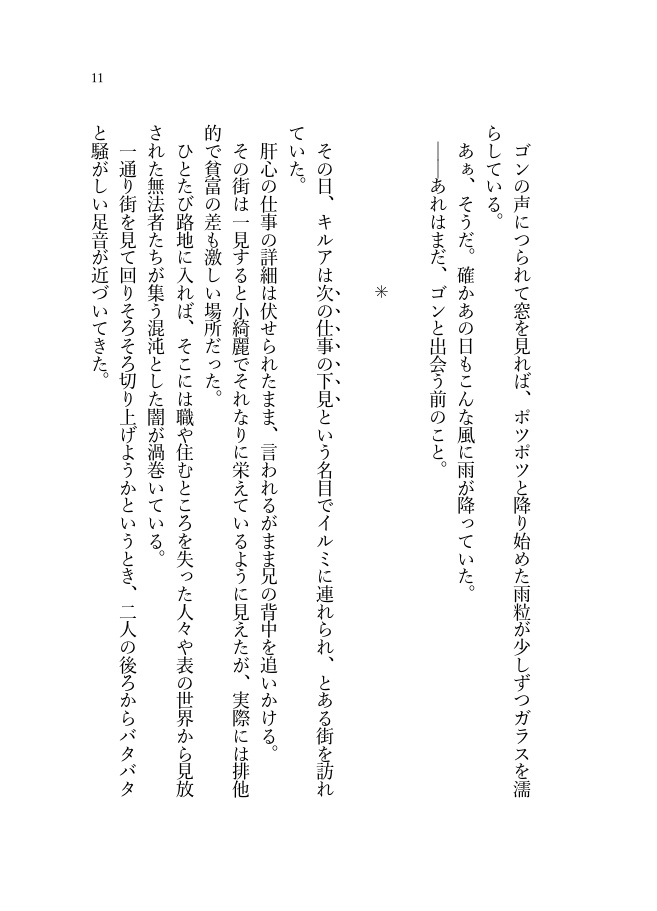 11
ゴンの声につられて窓を見れば、ポツポツと降り始めた雨粒が少しずつガラスを濡
らしている。
あぁ、そうだ。確かあの日もこんな風に雨が降っていた。
――あれはまだ、ゴンと出会う前のこと。
＊
その日、キルアは次の仕事の下見という名目でイルミに連れられ、とある街を訪れ
ていた。
肝心の仕事の詳細は伏せられたまま、言われるがまま兄の背中を追いかける。
その街は一見すると小綺麗でそれなりに栄えているように見えたが、実際には排他
的で貧富の差も激しい場所だった。
ひとたび路地に入れば、そこには職や住むところを失った人々や表の世界から見放
された無法者たちが集う混沌とした闇が渦巻いている。
一通り街を見て回りそろそろ切り上げようかというとき、二人の後ろからバタバタ
と騒がしい足音が近づいてきた。